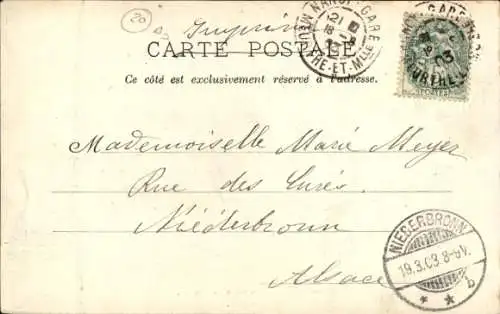 20
Imprimé
CARTE POSTALE
NANCY-GARE
21
18
MEURTHE-ET-MLLE
GARE
03
MEURTHE-
POSTES
Ce côté est exclusivement réservé à l'adresse.
Mademoiselle Marie Meyer
Rue des Curés.
Niederbronn
Alsace
NIEDERBRONN
19.3.03.8-9V.
* * b